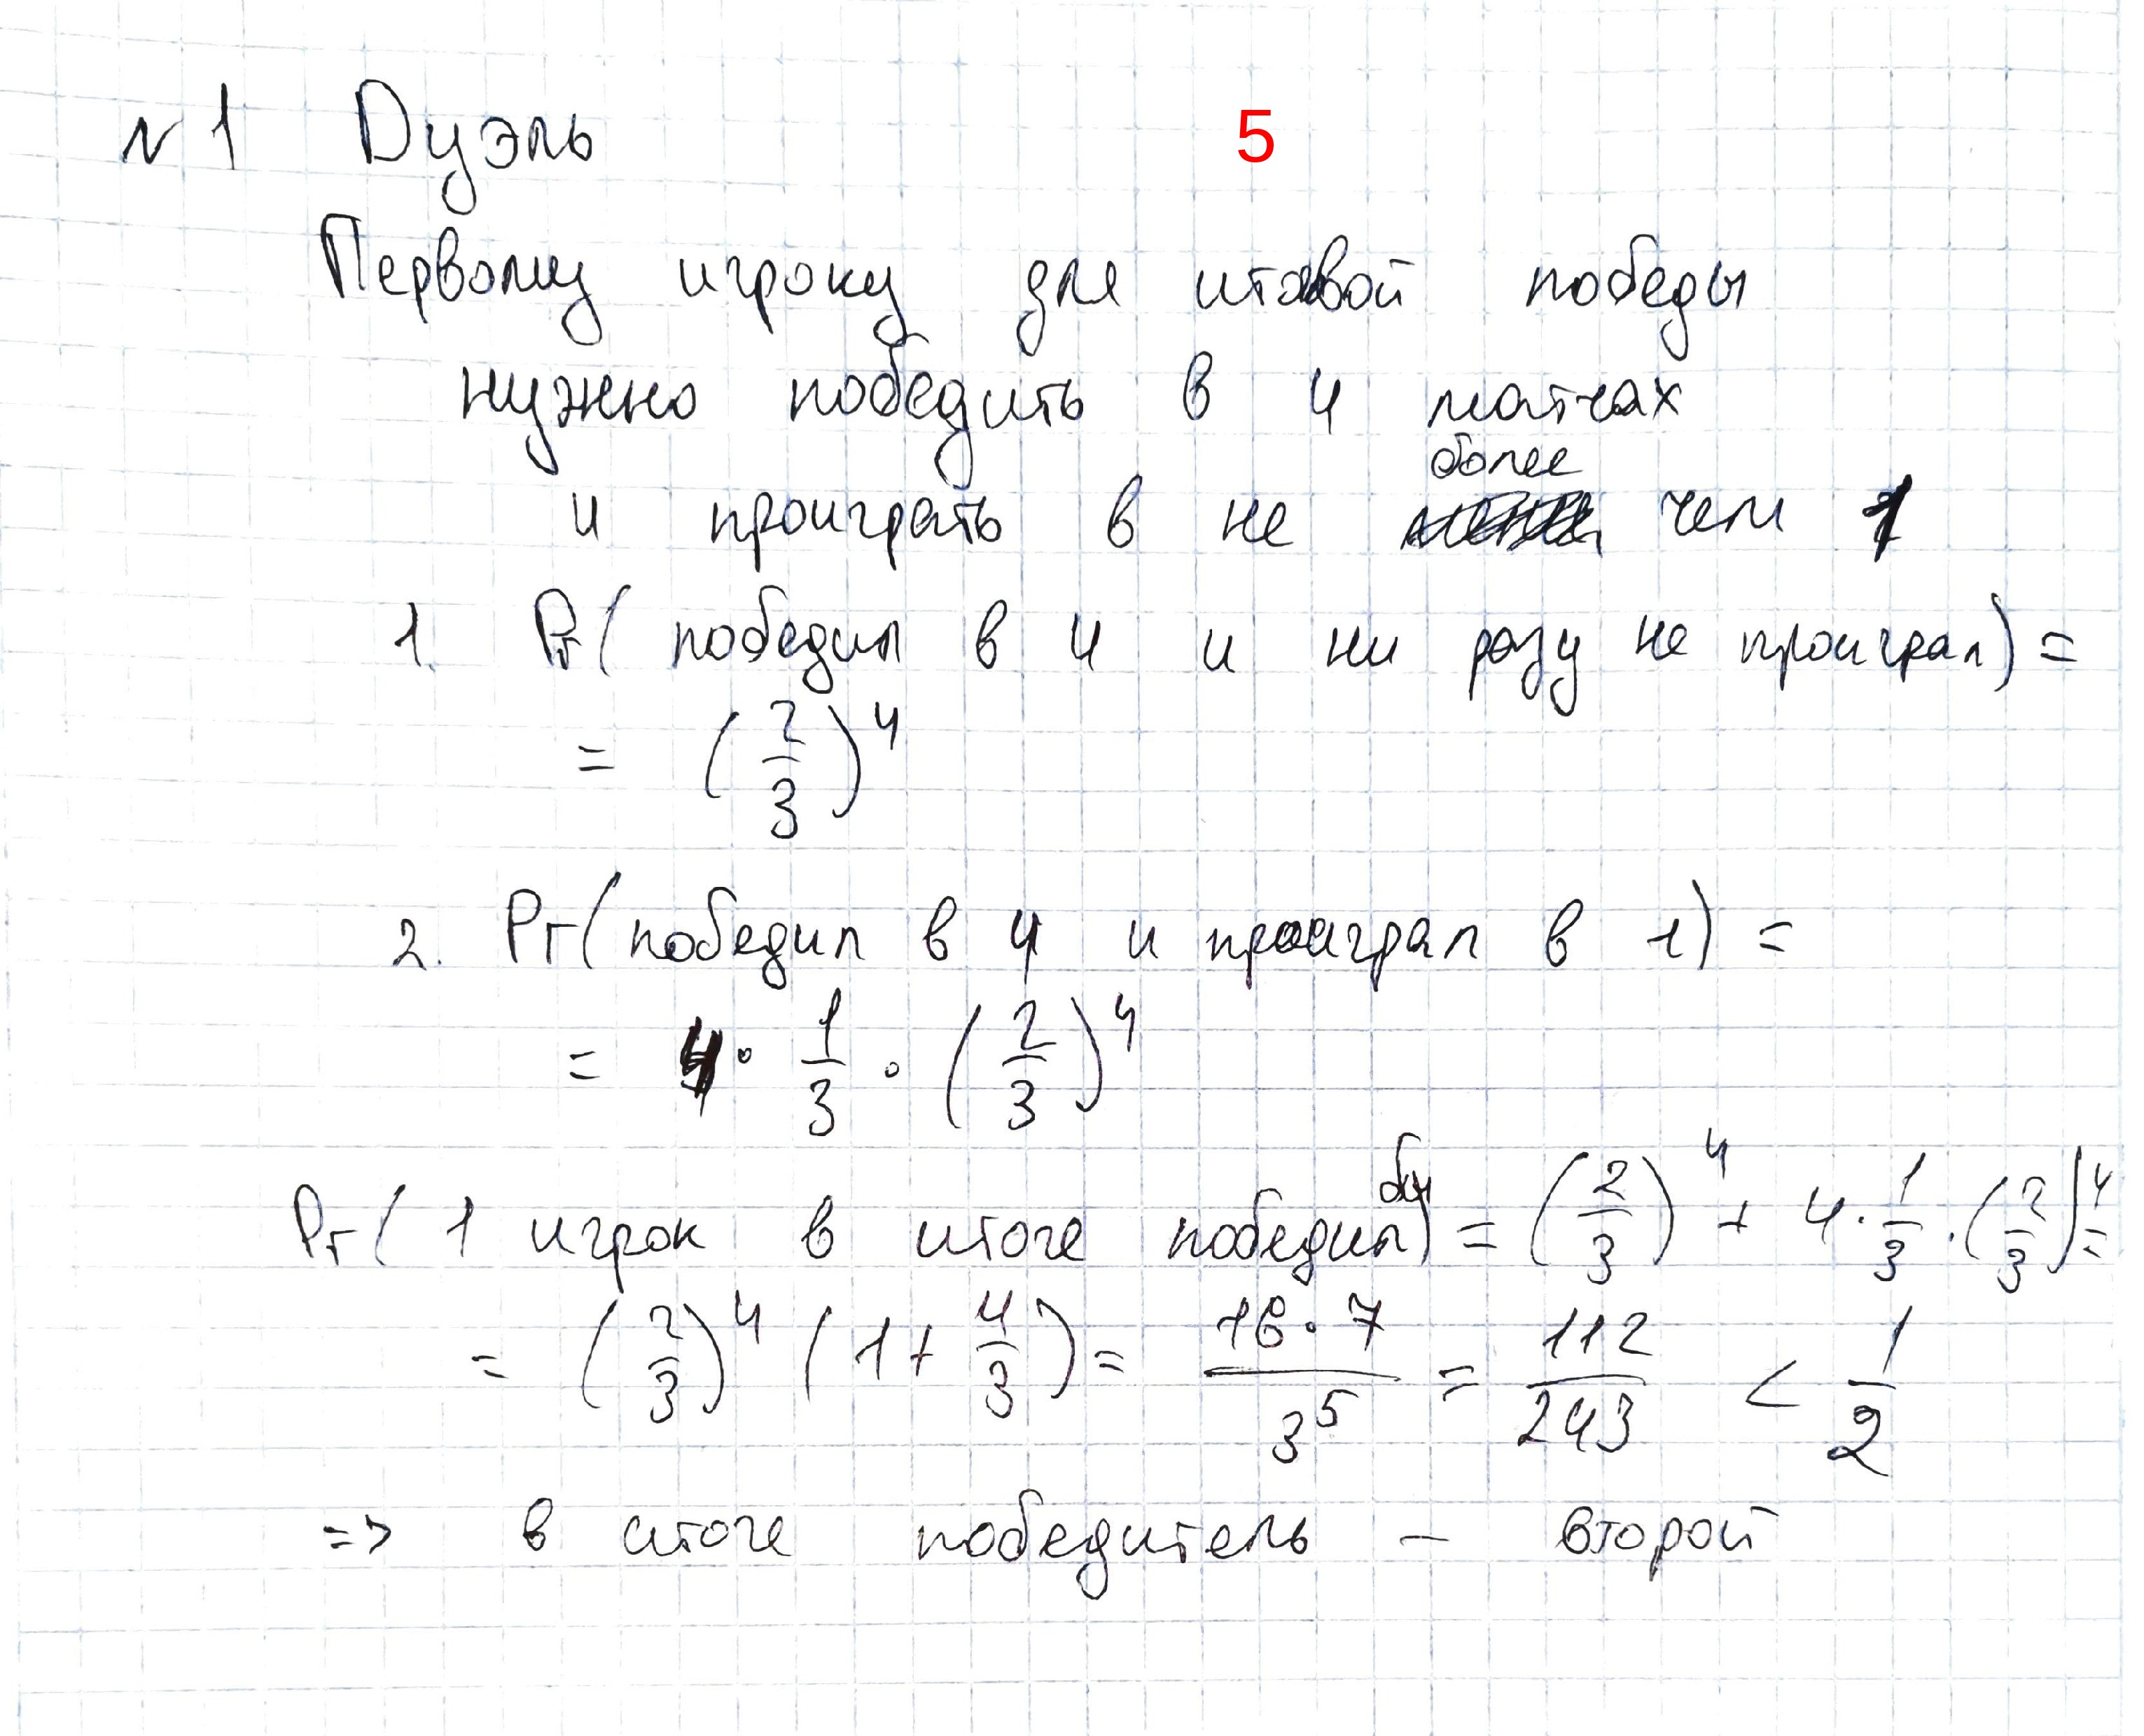 №1 Дуэль 5
Первому игроку для итоговой победы
нужно победить в 4 матчах
более
и проиграть в не чем 1
1. Pr( победил в 4 и ни разу не проиграл) =
= (2/3)^4
2. Pr(победил в 4 и проиграл в 1) =
= 4 · 1/3 · (2/3)^4
Pr( 1 игрок в итоге победил) = (2/3)^4 + 4 · 1/3 · (2/3)^4 =
= (2/3)^4 (1 + 4/3) = 16 · 7 / 3^5 = 112/243 < 1/2
=> в итоге победитель - второй